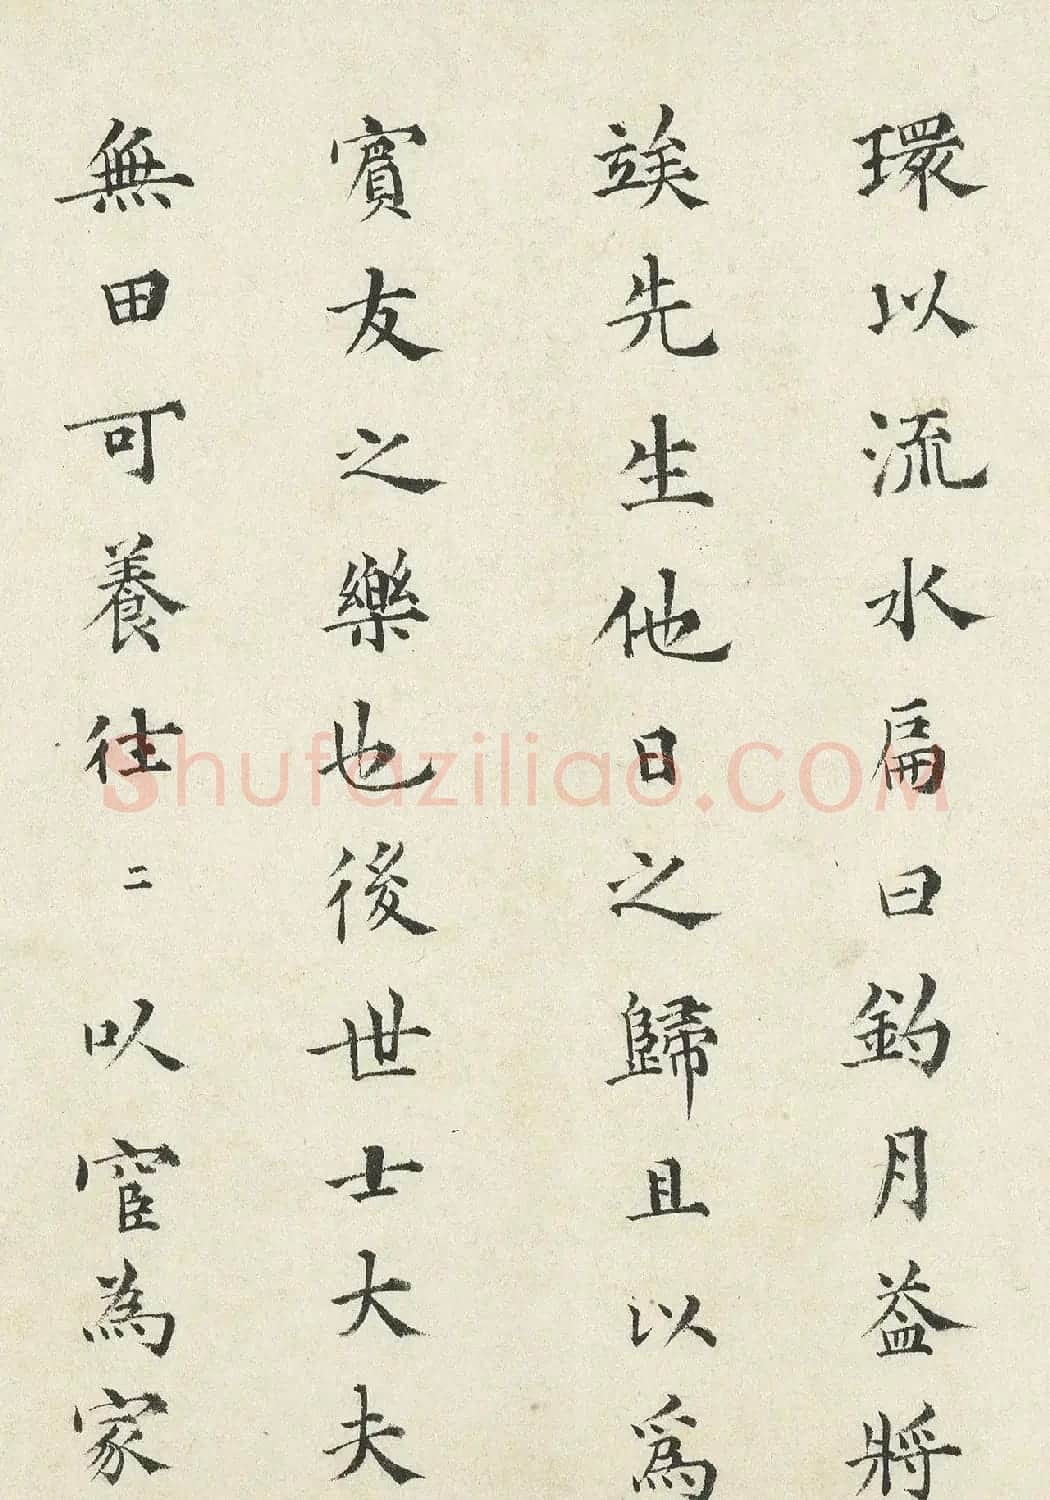 環以流水扁曰釣月益將
竢先生他日之歸且以為
賓友之樂也後世士大夫
無田可養往二以宦為家
Shufaziliao.COM